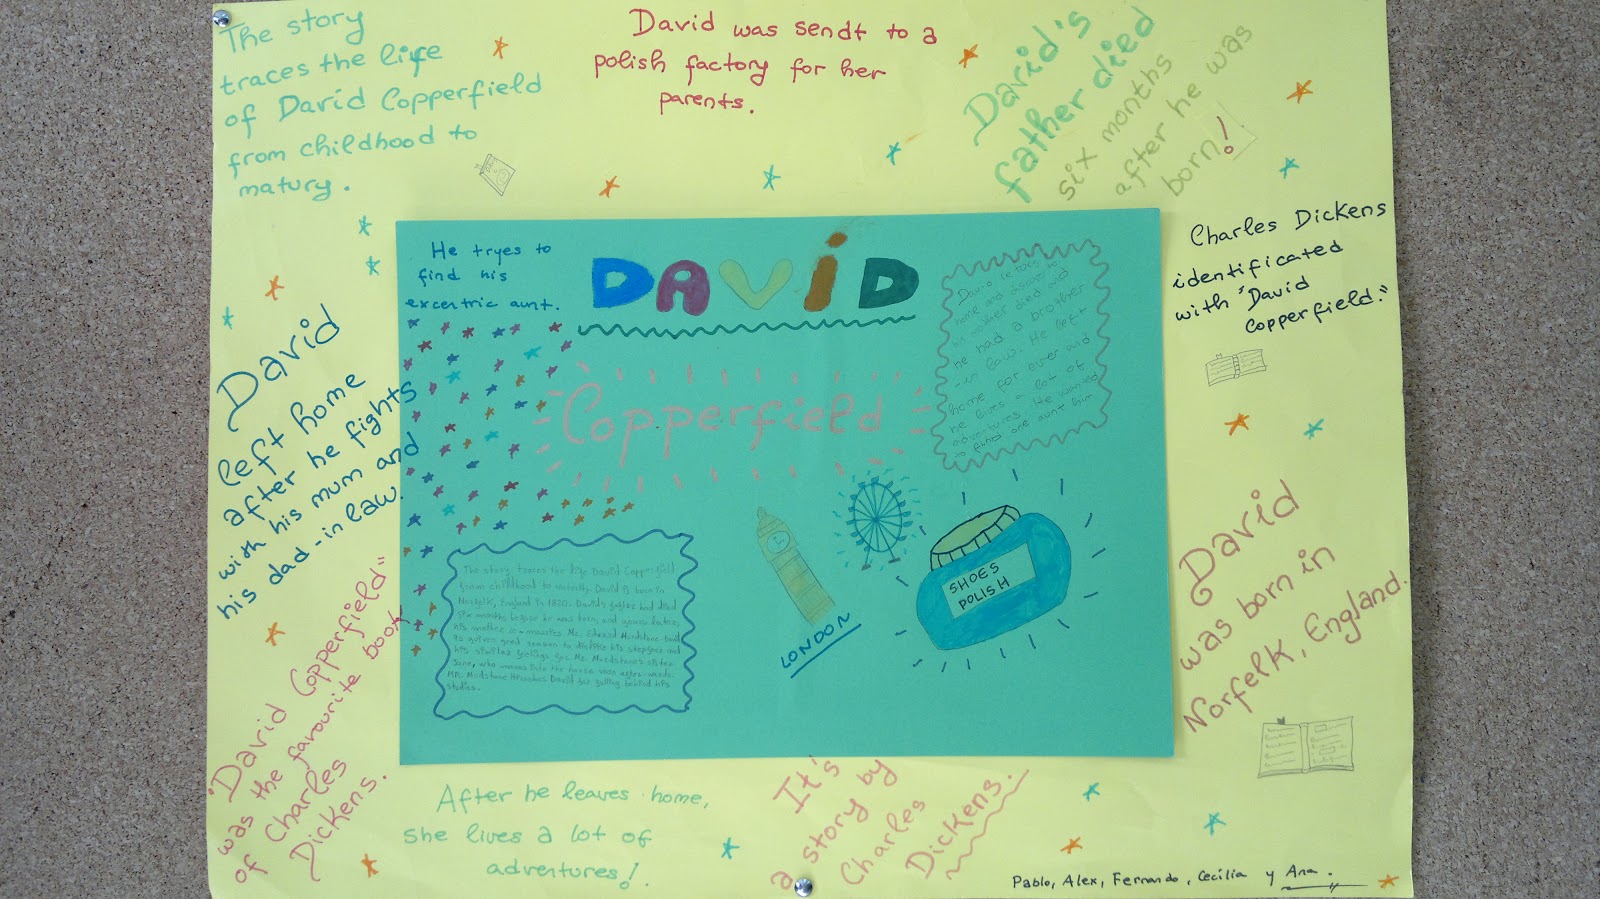 The story
traces the life
of David Copperfield
from childhood to
matury.
David was sendt to a
polish factory for her
parents.
David's
father died
six months
after he was
born!
He tryes to
find his
excentric aunt.
DAVID
Copperfield
David
home and
his mother died and
he had a brother
-in law. He left
home for ever and
he lives a lot of
adventures. He wanted
to find one aunt him
Charles Dickens
identificated
with "David
Copperfield."
David
left home
after he fights
with his mum and
his dad-in law.
The story traces the life David Copperfield
from childhood to maturity. David is born in
Norfolk, England in 1820. David's father had died
six months before he was born, and years later,
his mother marries Mr. Edward Murdstone. David
good reason to dislike his stepfather and
has similar feelings for Mr. Murdstone's sister
Jane, who moves into the house
Mr. Murdstone thrashes David for falling behind his
studies.
LONDON
SHOES
POLISH
David
was born in
Norfelk, England.
"David Copperfield"
was the favourite book
of Charles
Dickens.
After he leaves home,
she lives a lot of
adventures!.
It's
a story by
Charles
Dickens.
Pablo, Alex, Fernando, Cecilia y Ana.